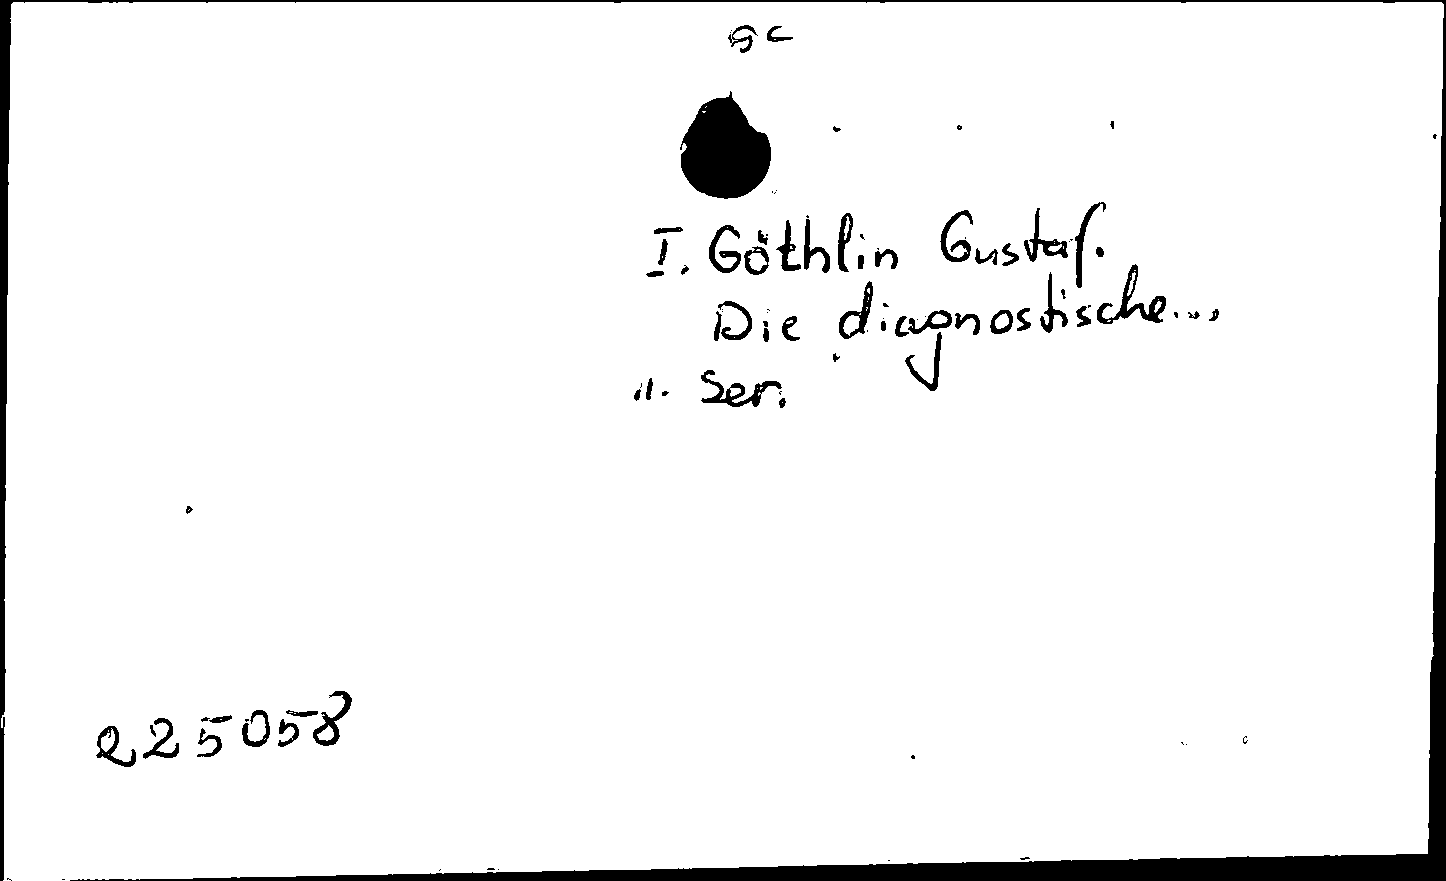 GC
I. Göthlin Gustaf.
Die diagnostische...
II. Ser.
225058